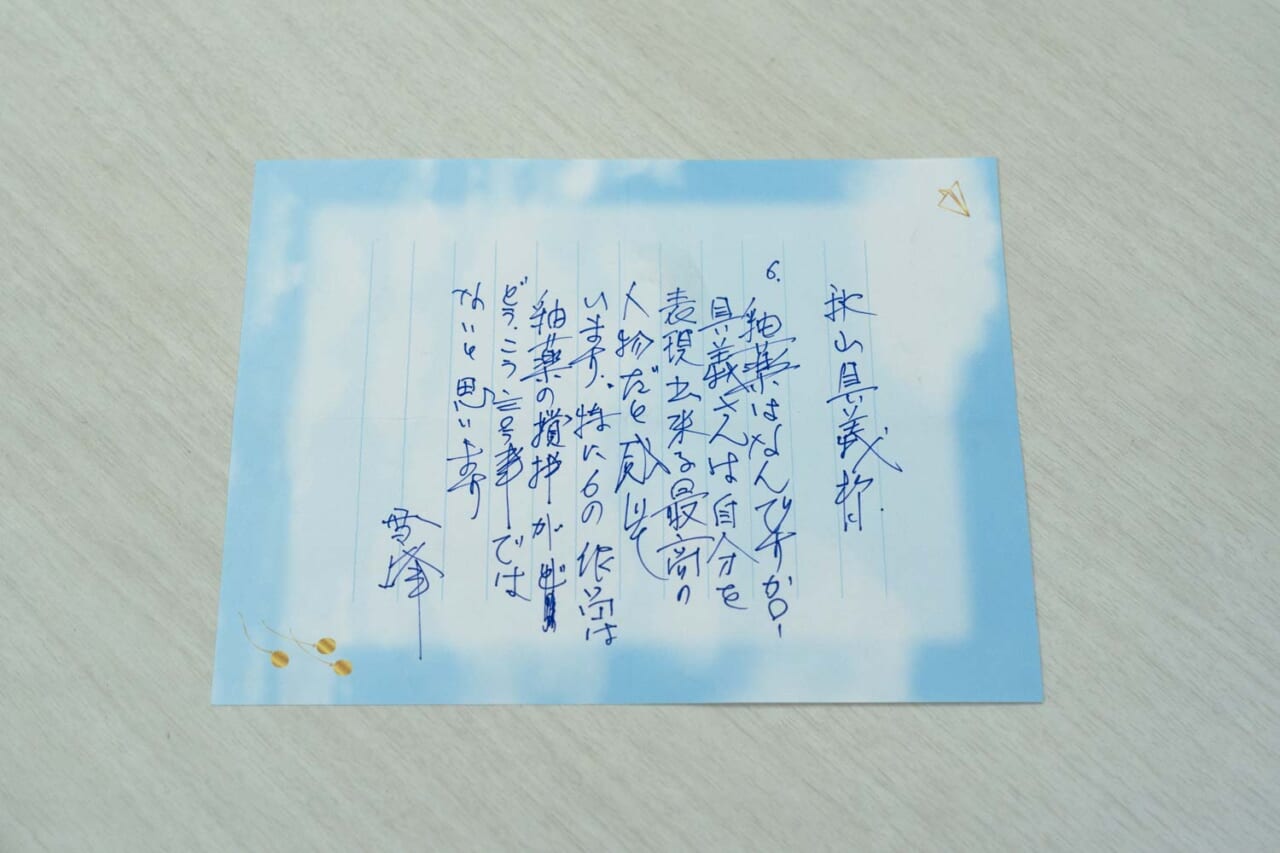 秋山具義様
6. 釉薬はなんですかー
具義さんは自分を
表現出来る最高の
人物だと感じて
います。特に6の作品は
釉薬の撹拌が
どう、こう言う事では
ないと思います
雪峰